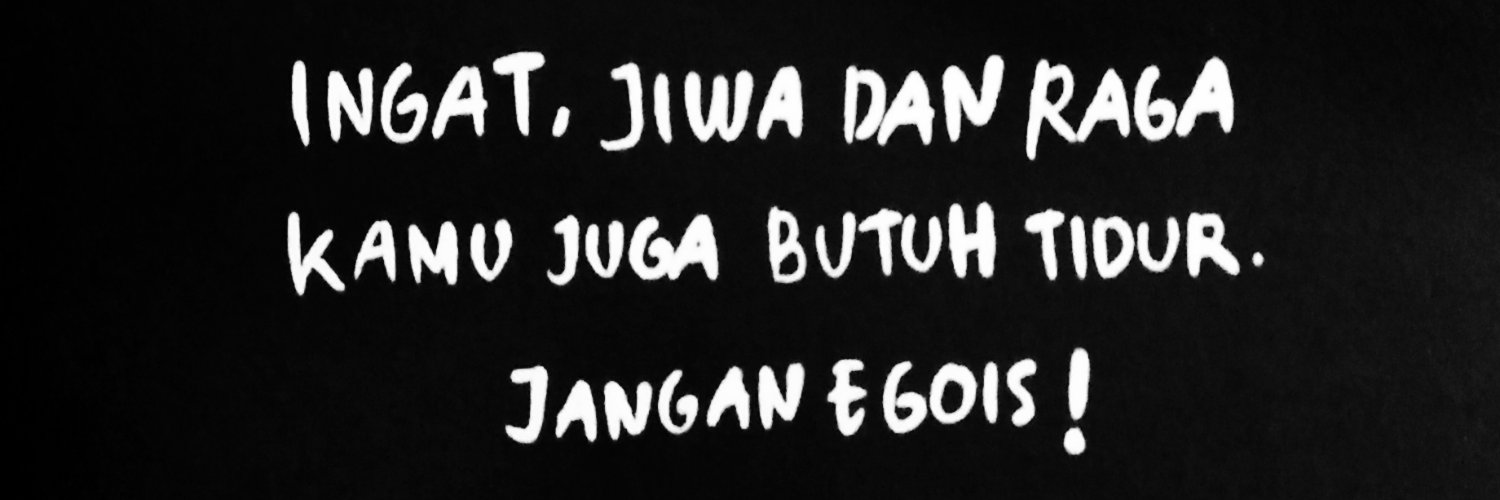 INGAT, JIWA DAN RAGA
KAMU JUGA BUTUH TIDUR.
JANGAN EGOIS!